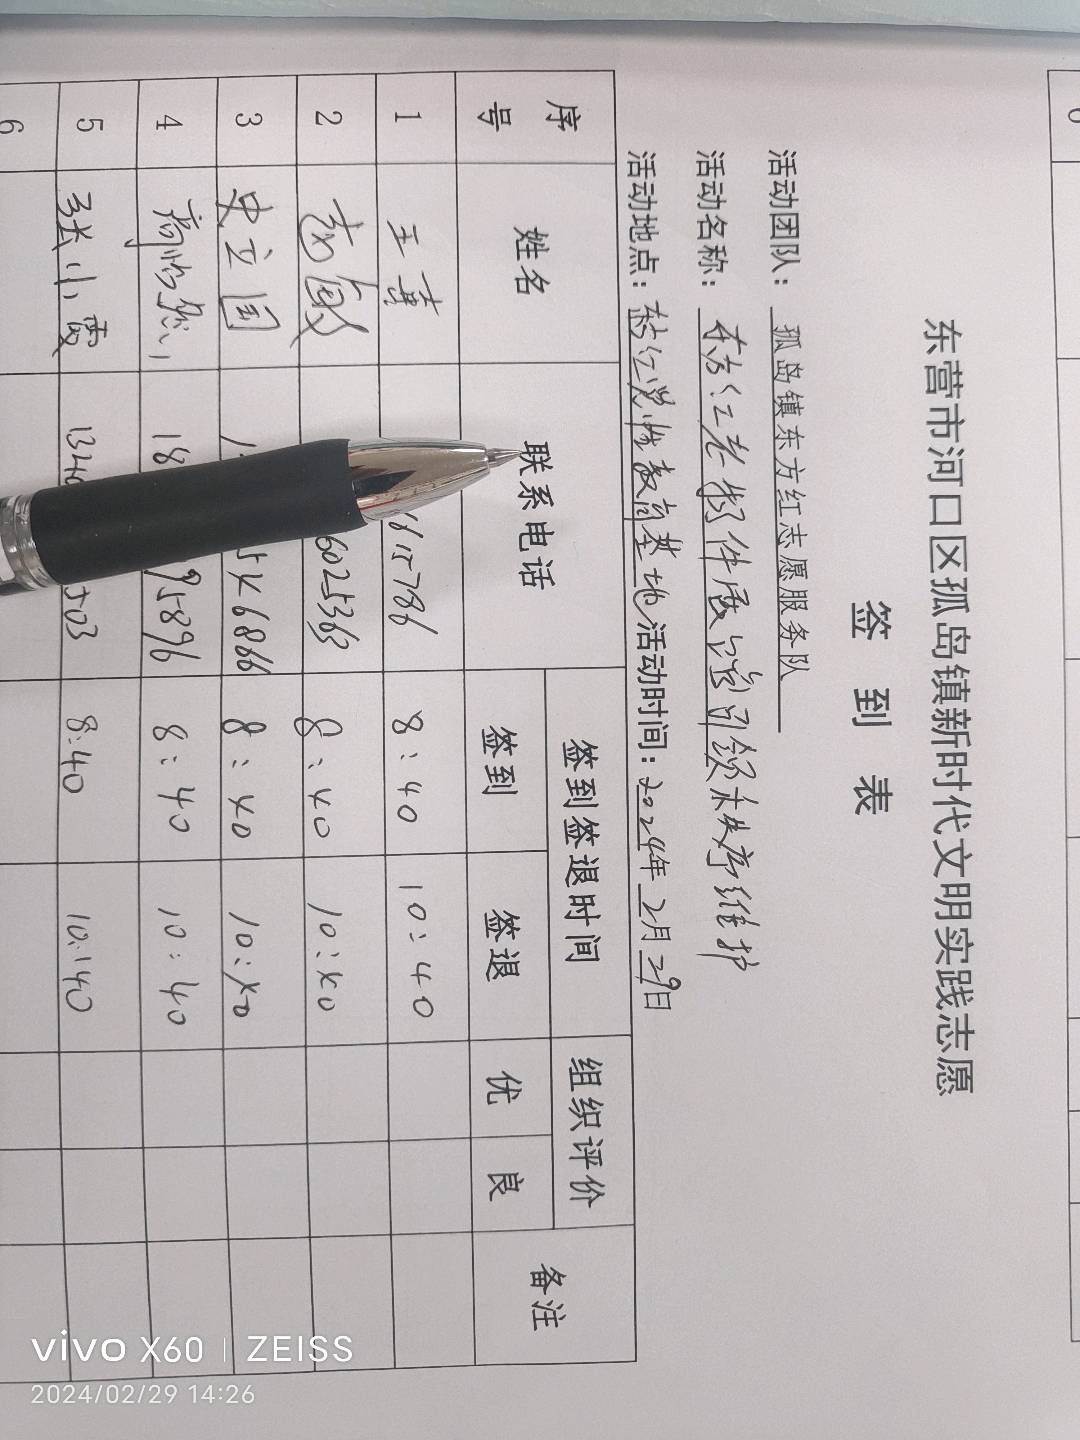 东营市河口区孤岛镇新时代文明实践志愿
签 到 表
活动团队：孤岛镇东方红志愿服务队
活动名称：东方红老物件展览馆引领秩序维护
活动地点：东方红党性教育基地 活动时间：2024年2月29日
序号 姓名 联系电话 签到签退时间 组织评价 备注
签到 签退 优 良
1 王 1615786 8:40 10:40
2 6025363 8:40 10:40
3 史立国 1 546866 8:40 10:40
4 18 95896 8:40 10:40
5 张小霞 1340 503 8:40 10:40
6
vivo X60 | ZEISS
2024/02/29 14:26